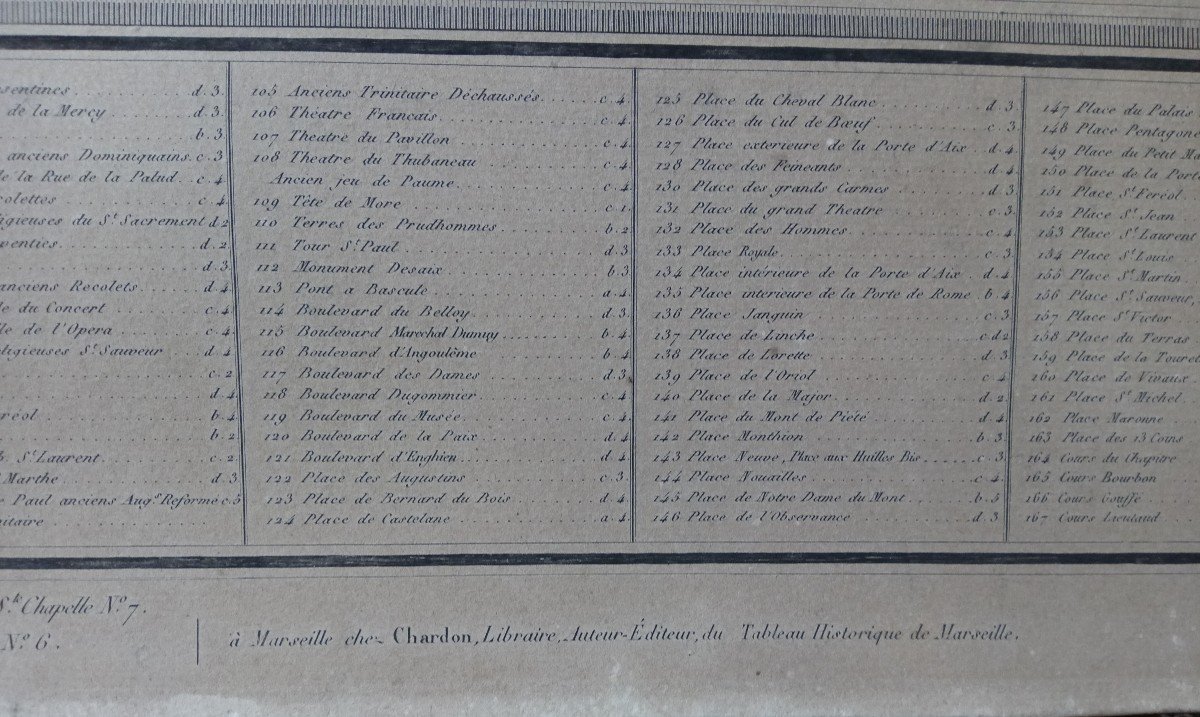 sentines d. 3.
de la Mercy d. 3.
b. 3
anciens Dominiquains. c. 3
de la Rue de la Palud. c. 4
colettes c. 4
ligieuses du St. Sacrement d. 2
venties. d. 2.
d. 3.
anciens Recolets. d. 4
le du Concert c. 4.
lle de l'Opera c. 4.
eligieuses St. Sauveur d. 4
c. 2
d. 4
eréol b. 4.
b. 2
St. Laurent. c. 2
Marthe d. 3
Paul anciens Augs. Réformé c. 5
nitaire
105 Anciens Trinitaire Déchaussés. c. 4.
106 Théatre Francais. c. 4.
107 Theatre du Pavillon c. 4.
108 Theatre du Thubaneau c. 4
Ancien jeu de Paume. c. 4.
109 Tête de More c. 1.
110 Terres des Prudhommes b. 2
111 Tour St. Paul d. 3
112 Monument Desaix b. 3
113 Pont a Bascule a. 4.
114 Boulevard du Belloy d. 3.
115 Boulevard Marechal Dumuy b. 4.
116 Boulevard d'Angoulême b. 4.
117 Boulevard des Dames d. 3.
118 Boulevard Dugommier c. 4
119 Boulevard du Musée. c. 4.
120 Boulevard de la Paix d. 4.
121 Boulevard d'Enghien d. 4.
122 Place des Augustins c. 3.
123 Place de Bernard du Bois d. 4.
124 Place de Castelane a. 4.
125 Place du Cheval Blanc d. 3
126 Place du Cul de Bœuf. c. 3.
127 Place exterieure de la Porte d'Aix d. 4.
128 Place des Feineants d. 4
130 Place des grands Carmes d. 3
131 Place du grand Theatre c. 3.
132 Place des Hommes. c. 4
133 Place Royale. c. 3
134 Place intérieure de la Porte d'Aix d. 4.
135 Place interieure de la Porte de Rome. b. 4.
136 Place Janguin c. 3
137 Place de Linche c. d 2
138 Place de Lorette d. 3
139 Place de l'Oriol c. 4
140 Place de la Major d. 2
141 Place du Mont de Piété d. 4
142 Place Monthion b. 3.
143 Place Neuve, Place aux Huilles Bis c. 3.
144 Place Nouailles c. 4
145 Place de Notre Dame du Mont b. 5
146 Place de l'Observance d. 3
147 Place du Palais
148 Place Pentagone
149 Place du Petit
150 Place de la Porte
151 Place St. Feréol
152 Place St. Jean
153 Place St. Laurent
154 Place St. Louis
155 Place St. Martin
156 Place St. Sauveur
157 Place St. Victor
158 Place du Terras
159 Place de la Touret
160 Place de Vivaux
161 Place St. Michel
162 Place Maronne
163 Place des 13 Coins
164 Cours du Chapitre
165 Cours Bourbon
166 Cours Gouffé
167 Cours Lieutaud
Ste. Chapelle No. 7.
No. 6.
à Marseille chez Chardon, Libraire, Auteur-Éditeur, du Tableau Historique de Marseille.